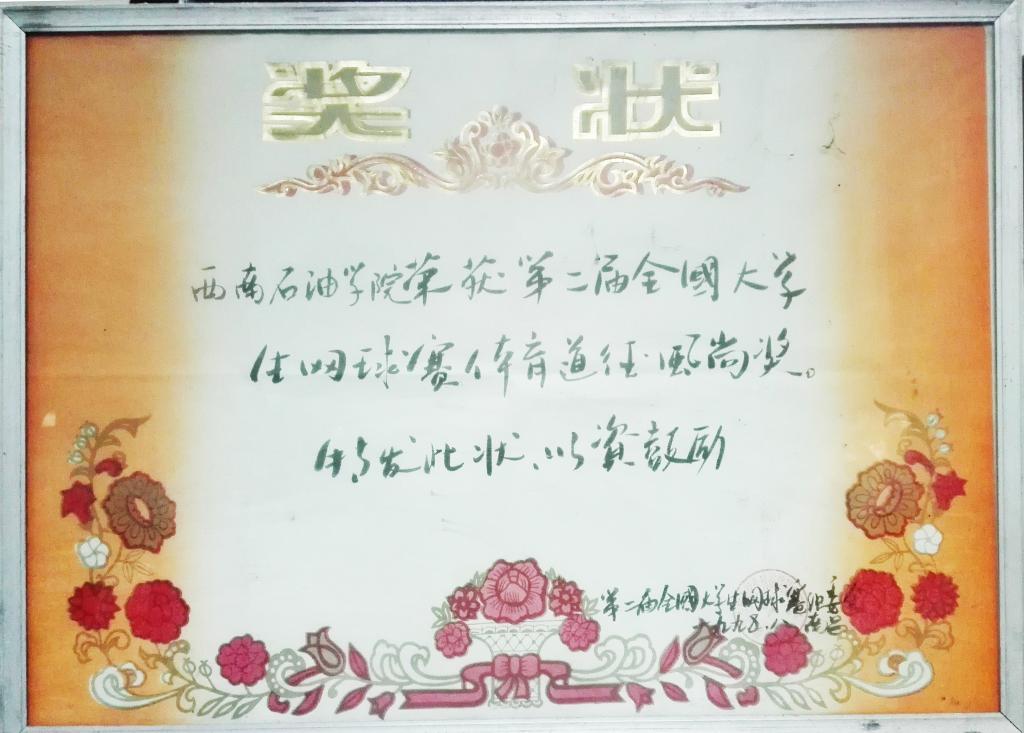 奖状
西南石油学院荣获第二届全國大学
生网球赛体育道德風尚奖。
特发此状,以资鼓励
第二届全國大学生网球赛组委会
一九九五.八 南昌